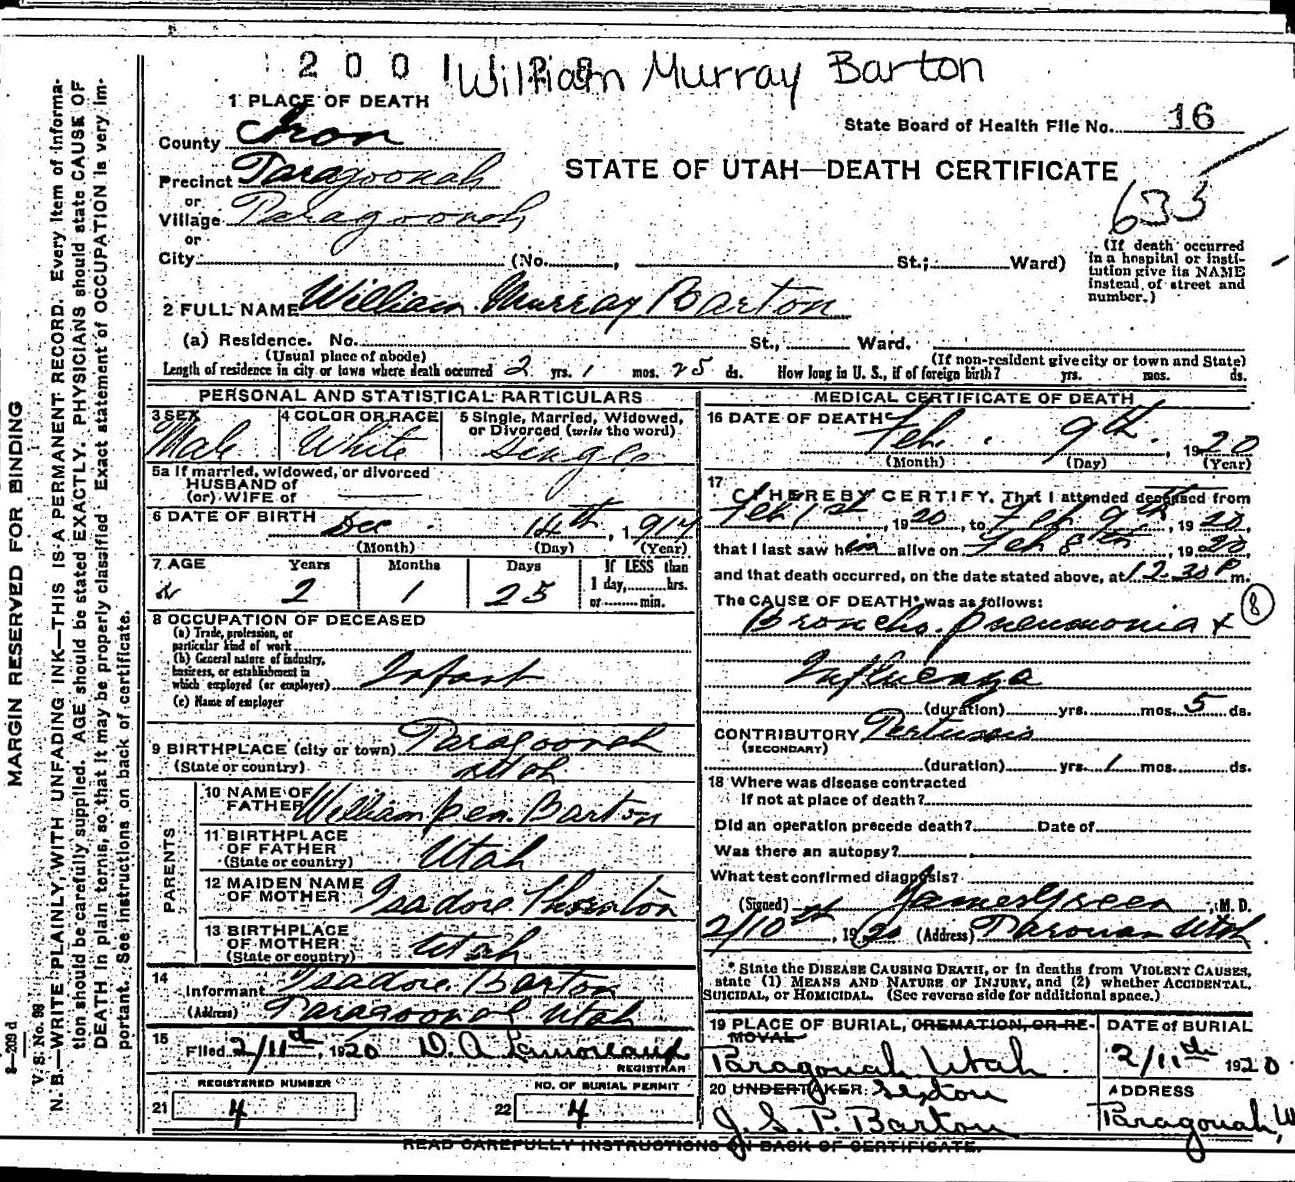 2 0 0 1
William Murray Barton
1 PLACE OF DEATH
County Iron
State Board of Health File No. 16
Precinct Paragoonah
STATE OF UTAH—DEATH CERTIFICATE
or
Village Paragoonah
633
or
City (No. , St.; Ward)
(If death occurred
in a hospital or insti-
tution give its NAME
instead of street and
number.)
2 FULL NAME William Murray Barton
(a) Residence. No. St., Ward.
(Usual place of abode) (If non-resident give city or town and State)
Length of residence in city or town where death occurred 2 yrs. 1 mos. 25 ds. How long in U. S., if of foreign birth? yrs. mos. ds.
PERSONAL AND STATISTICAL PARTICULARS
3 SEX 4 COLOR OR RACE 5 Single, Married, Widowed,
or Divorced (write the word)
Male White Single
5a If married, widowed, or divorced
HUSBAND of
(or) WIFE of
6 DATE OF BIRTH Dec. 14th, 1917
(Month) (Day) (Year)
7 AGE Years Months Days If LESS than
1 day, hrs.
or min.
2 1 25
8 OCCUPATION OF DECEASED
(a) Trade, profession, or
particular kind of work
(b) General nature of industry,
business, or establishment in
which employed (or employer) Infant
(c) Name of employer
9 BIRTHPLACE (city or town) Paragoonah
(State or country) Utah
PARENTS
10 NAME OF
FATHER William Pen. Barton
11 BIRTHPLACE
OF FATHER
(State or country) Utah
12 MAIDEN NAME
OF MOTHER Isadore Thornton
13 BIRTHPLACE
OF MOTHER
(State or country) Utah
14
Informant Isadore Barton
(Address) Paragoonah Utah
15
Filed 2/11th, 1920 D. A. Lamoreaux
REGISTRAR
REGISTERED NUMBER NO. OF BURIAL PERMIT
21 4 22 4
MEDICAL CERTIFICATE OF DEATH
16 DATE OF DEATH
Feb. 9th. , 1920
(Month) (Day) (Year)
17
I HEREBY CERTIFY, That I attended deceased from
Feb 1st, 1920, to Feb 9th, 1920,
that I last saw him alive on Feb 8th, 1920,
and that death occurred, on the date stated above, at 12.30 P m.
The CAUSE OF DEATH* was as follows:
8
Broncho. pneumonia +
Influenza
(duration) yrs. mos. 5 ds.
CONTRIBUTORY Pertussis
(SECONDARY)
(duration) yrs. 1 mos. ds.
18 Where was disease contracted
If not at place of death?
Did an operation precede death? Date of
Was there an autopsy?
What test confirmed diagnosis?
(Signed) James Green, M. D.
2/10th, 1920 (Address) Parowan Utah
* State the DISEASE CAUSING DEATH, or in deaths from VIOLENT CAUSES,
state (1) MEANS AND NATURE OF INJURY, and (2) whether ACCIDENTAL,
SUICIDAL, or HOMICIDAL. (See reverse side for additional space.)
19 PLACE OF BURIAL, CREMATION, OR RE-
MOVAL
DATE of BURIAL
Paragonah Utah. 2/11th 1920
20 UNDERTAKER Sexton
ADDRESS
J. S. P. Barton Paragonah,
READ CAREFULLY INSTRUCTIONS ON BACK OF CERTIFICATE.
MARGIN RESERVED FOR BINDING
V. S. No. 98
N. B.—WRITE PLAINLY, WITH UNFADING INK—THIS IS A PERMANENT RECORD. Every item of informa-
tion should be carefully supplied. AGE should be stated EXACTLY. PHYSICIANS should state CAUSE OF
DEATH in plain terms, so that it may be properly classified. Exact statement of OCCUPATION is very im-
portant. See instructions on back of certificate.